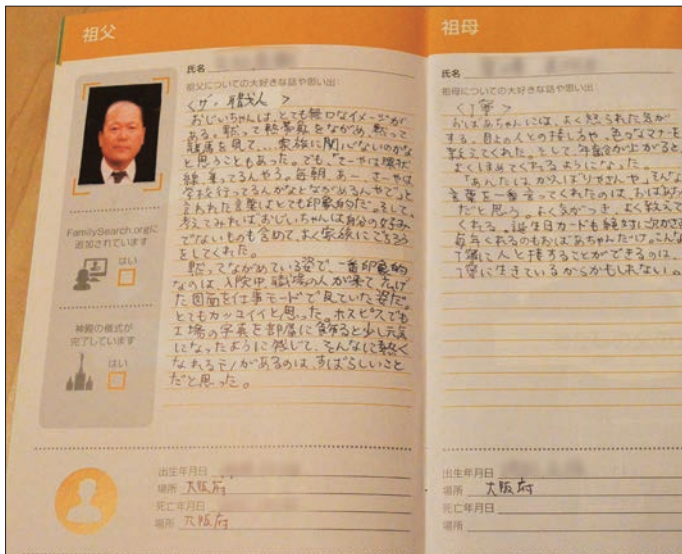 祖父
氏名
祖父についての大好きな話や思い出:
<ザ・職人>
おじいちゃんは、とても無口なイメージが
ある。黙って熱帯魚をながめ、黙って
競馬を見て…家族に関心ないのかな
と思うこともあった。でも、「さーやは環状
線乗ってるんやろ。毎朝、あー、さーやは
学校行ってるんかなとながめるんやで」と
言われた言葉はとても印象的だ。そして、
考えてみればおじいちゃんは自分の好み
でないものも含めて、よく家族にごちそう
をしてくれた。
黙ってながめている姿で、一番印象的
なのは、入院中、職場の人が来て広げ
た図面を仕事モードで見ていた姿だ。
とてもカッコイイと思った。ホスピスでも
工場の写真を部屋に飾ると少し元気
になったように感じて、そんなに熱く
なれるモノがあるのは、すばらしいこと
だと思った。
FamilySearch.orgに
追加されています
はい
神殿の儀式が
完了しています
はい
出生年月日
場所 大阪府
死亡年月日
場所 大阪府
祖母
氏名
祖母についての大好きな話や思い出:
<丁寧>
おばあちゃんには、よく怒られた気が
する。目上の人との接し方や、色々なマナーを
教えてくれた。そして、年齢が上がると、
よくほめてくれるようになった。
「あんたは、がんばりやさんや。」そんな
言葉を一番言ってくれたのは、おばあ
だと思う。よく気がつき、よく教えて
くれる。誕生日カードも絶対に欠かさ
毎年くれるのもおばあちゃんだけ。こんな
丁寧に人と接することができるのは、
丁寧に生きているからかもしれない。
出生年月日
場所 大阪府
死亡年月日
場所